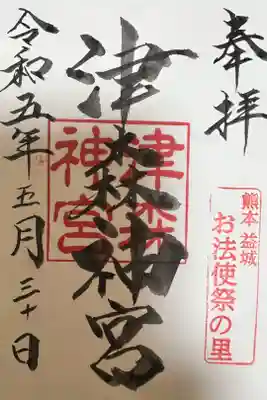 奉拝
熊本 益城
お法使祭の里
津森神宮
津森
神宮
令和五年五月三十日